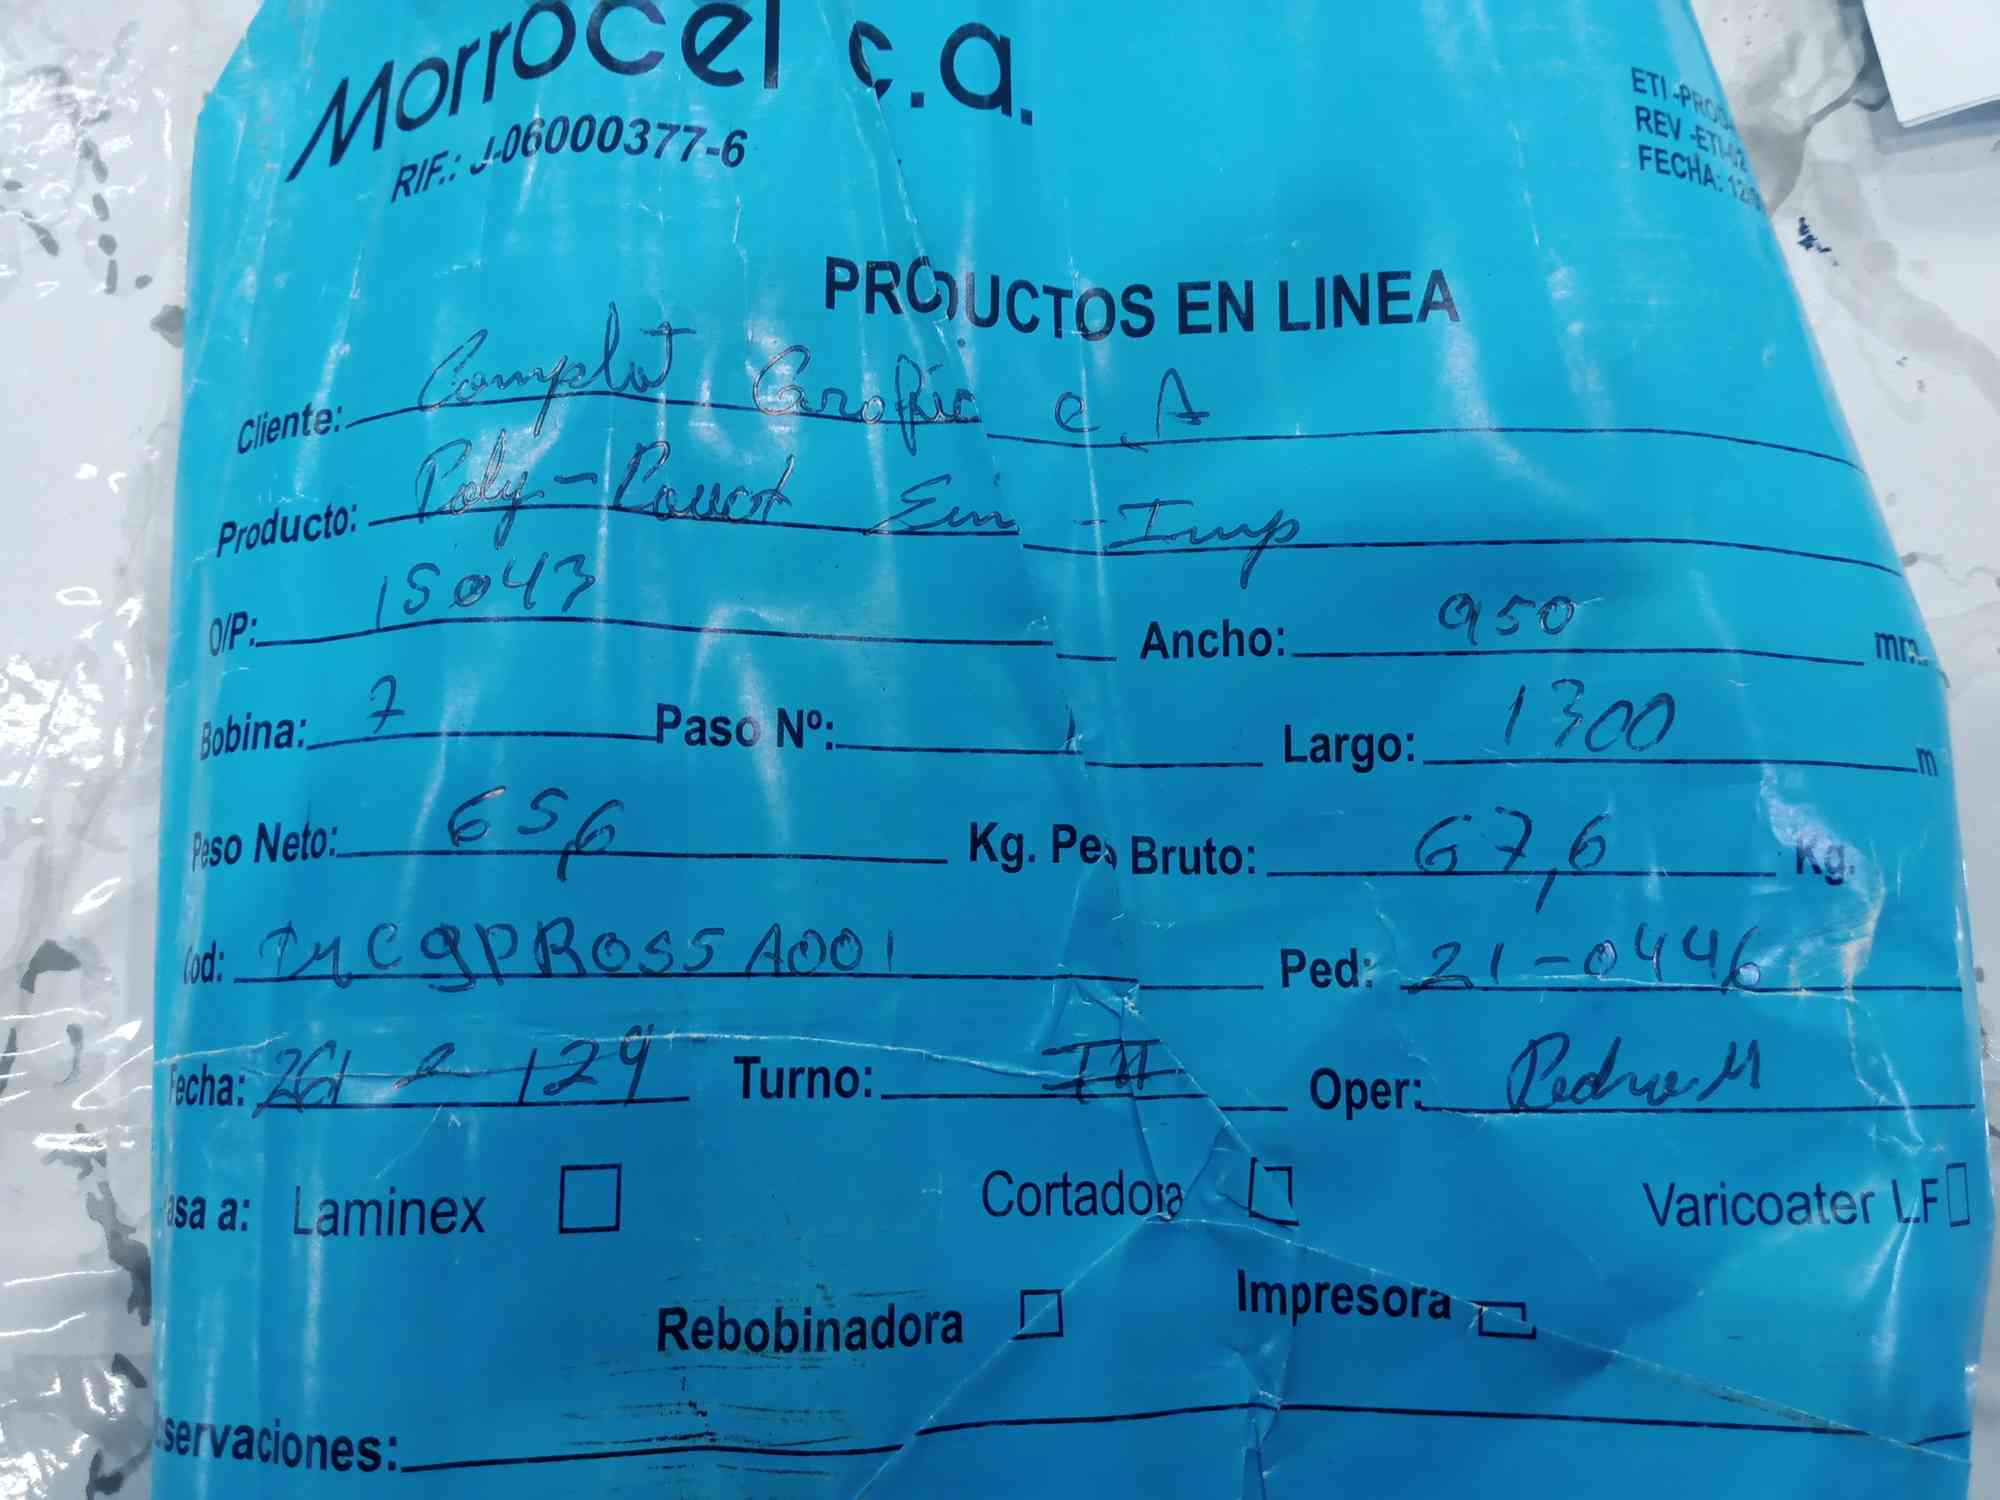 Morrocel c.a.
RIF.: J-06000377-6
ETI-PROD
REV-ETI-02
FECHA: 12
PRODUCTOS EN LINEA
Cliente: Complot Grafic C.A
Producto: Poly-Pouch Sin-Imp
O/P: 15043 Ancho: 950 mm.
Bobina: 7 Paso Nº: 1 Largo: 1300 m
Peso Neto: 65,6 Kg. Peso Bruto: 67,6 Kg.
Cod: PROSS A001 Ped: 21-0446
Fecha: Turno: III Oper: Pedro M
Pasa a: Laminex Cortadora Varicoater LF
Rebobinadora Impresora
Observaciones: